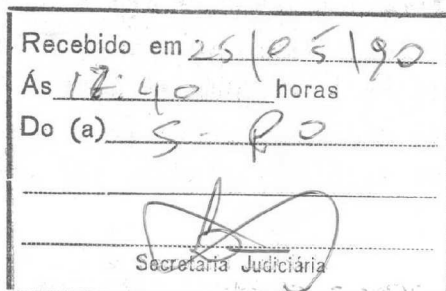 Recebido em 25/05/90
Ás 17:40 horas
Do (a) S-
Secretaria Judiciária